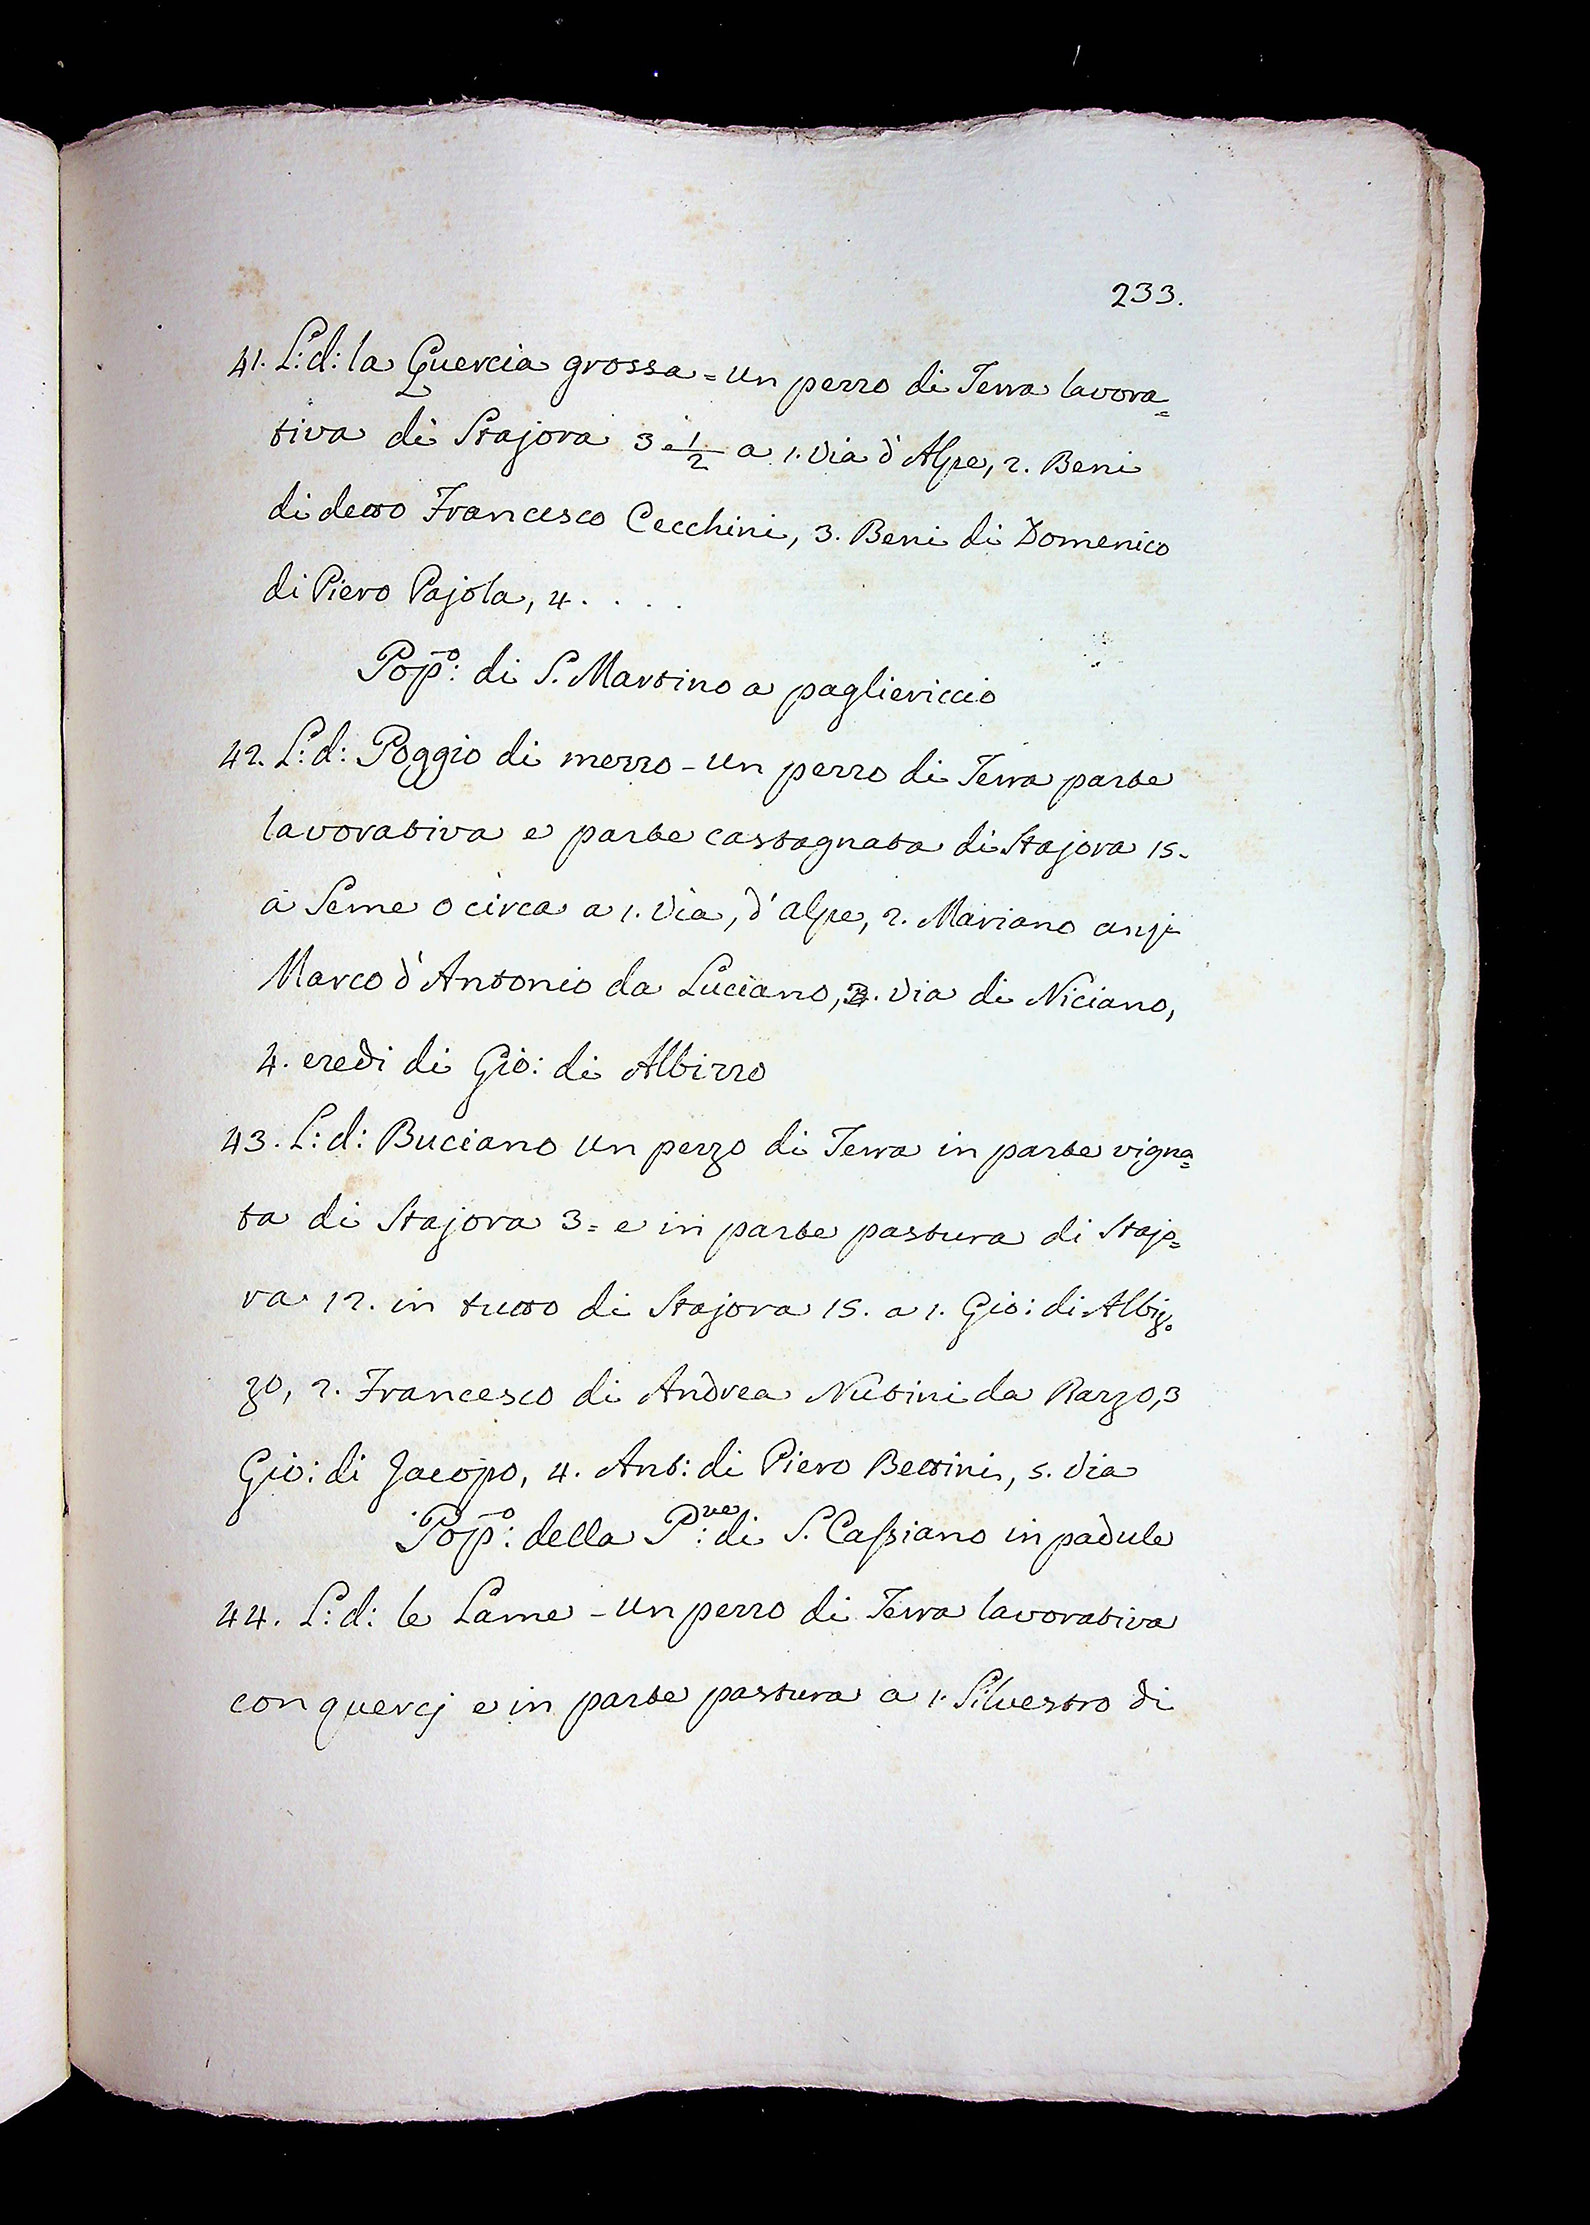 233.
41. L: d: la Quercia grossa = un pezzo di Terra lavora=
tiva di Stajora 3 e 1/2 a 1. Via d'Alpe, 2. Beni
di detto Francesco Cecchini, 3. Beni di Domenico
di Piero Pajola, 4. . . . .
Pop:º di S. Martino a pagliericcio
42. L: d: Poggio di mezzo - un pezzo di Terra parte
lavorativa e parte castagnata di Stajora 15.
a Seme o circa a 1. Via, d'alpe, 2. Mariano anzi
Marco d'Antonio da Luciano, 3. Via di Niciano,
4. eredi di Gio: di Albizzo
43. L: d: Buciano un pezzo di Terra in parte vigna=
ta di Stajora 3 = e in parte pastura di Stajo=
ra 12. in tutto di Stajora 15. a 1. Gio: di Albiz=
zo, 2. Francesco di Andrea Nutini da Razzo, 3
Gio: di Jacopo, 4. Ant: di Piero Bettini, 5. Via
Pop:º della P:ve di S. Cassiano in padule
44. L: d: le Lame - un pezzo di Terra lavorativa
con quercj e in parte pastura a 1. Silvestro di